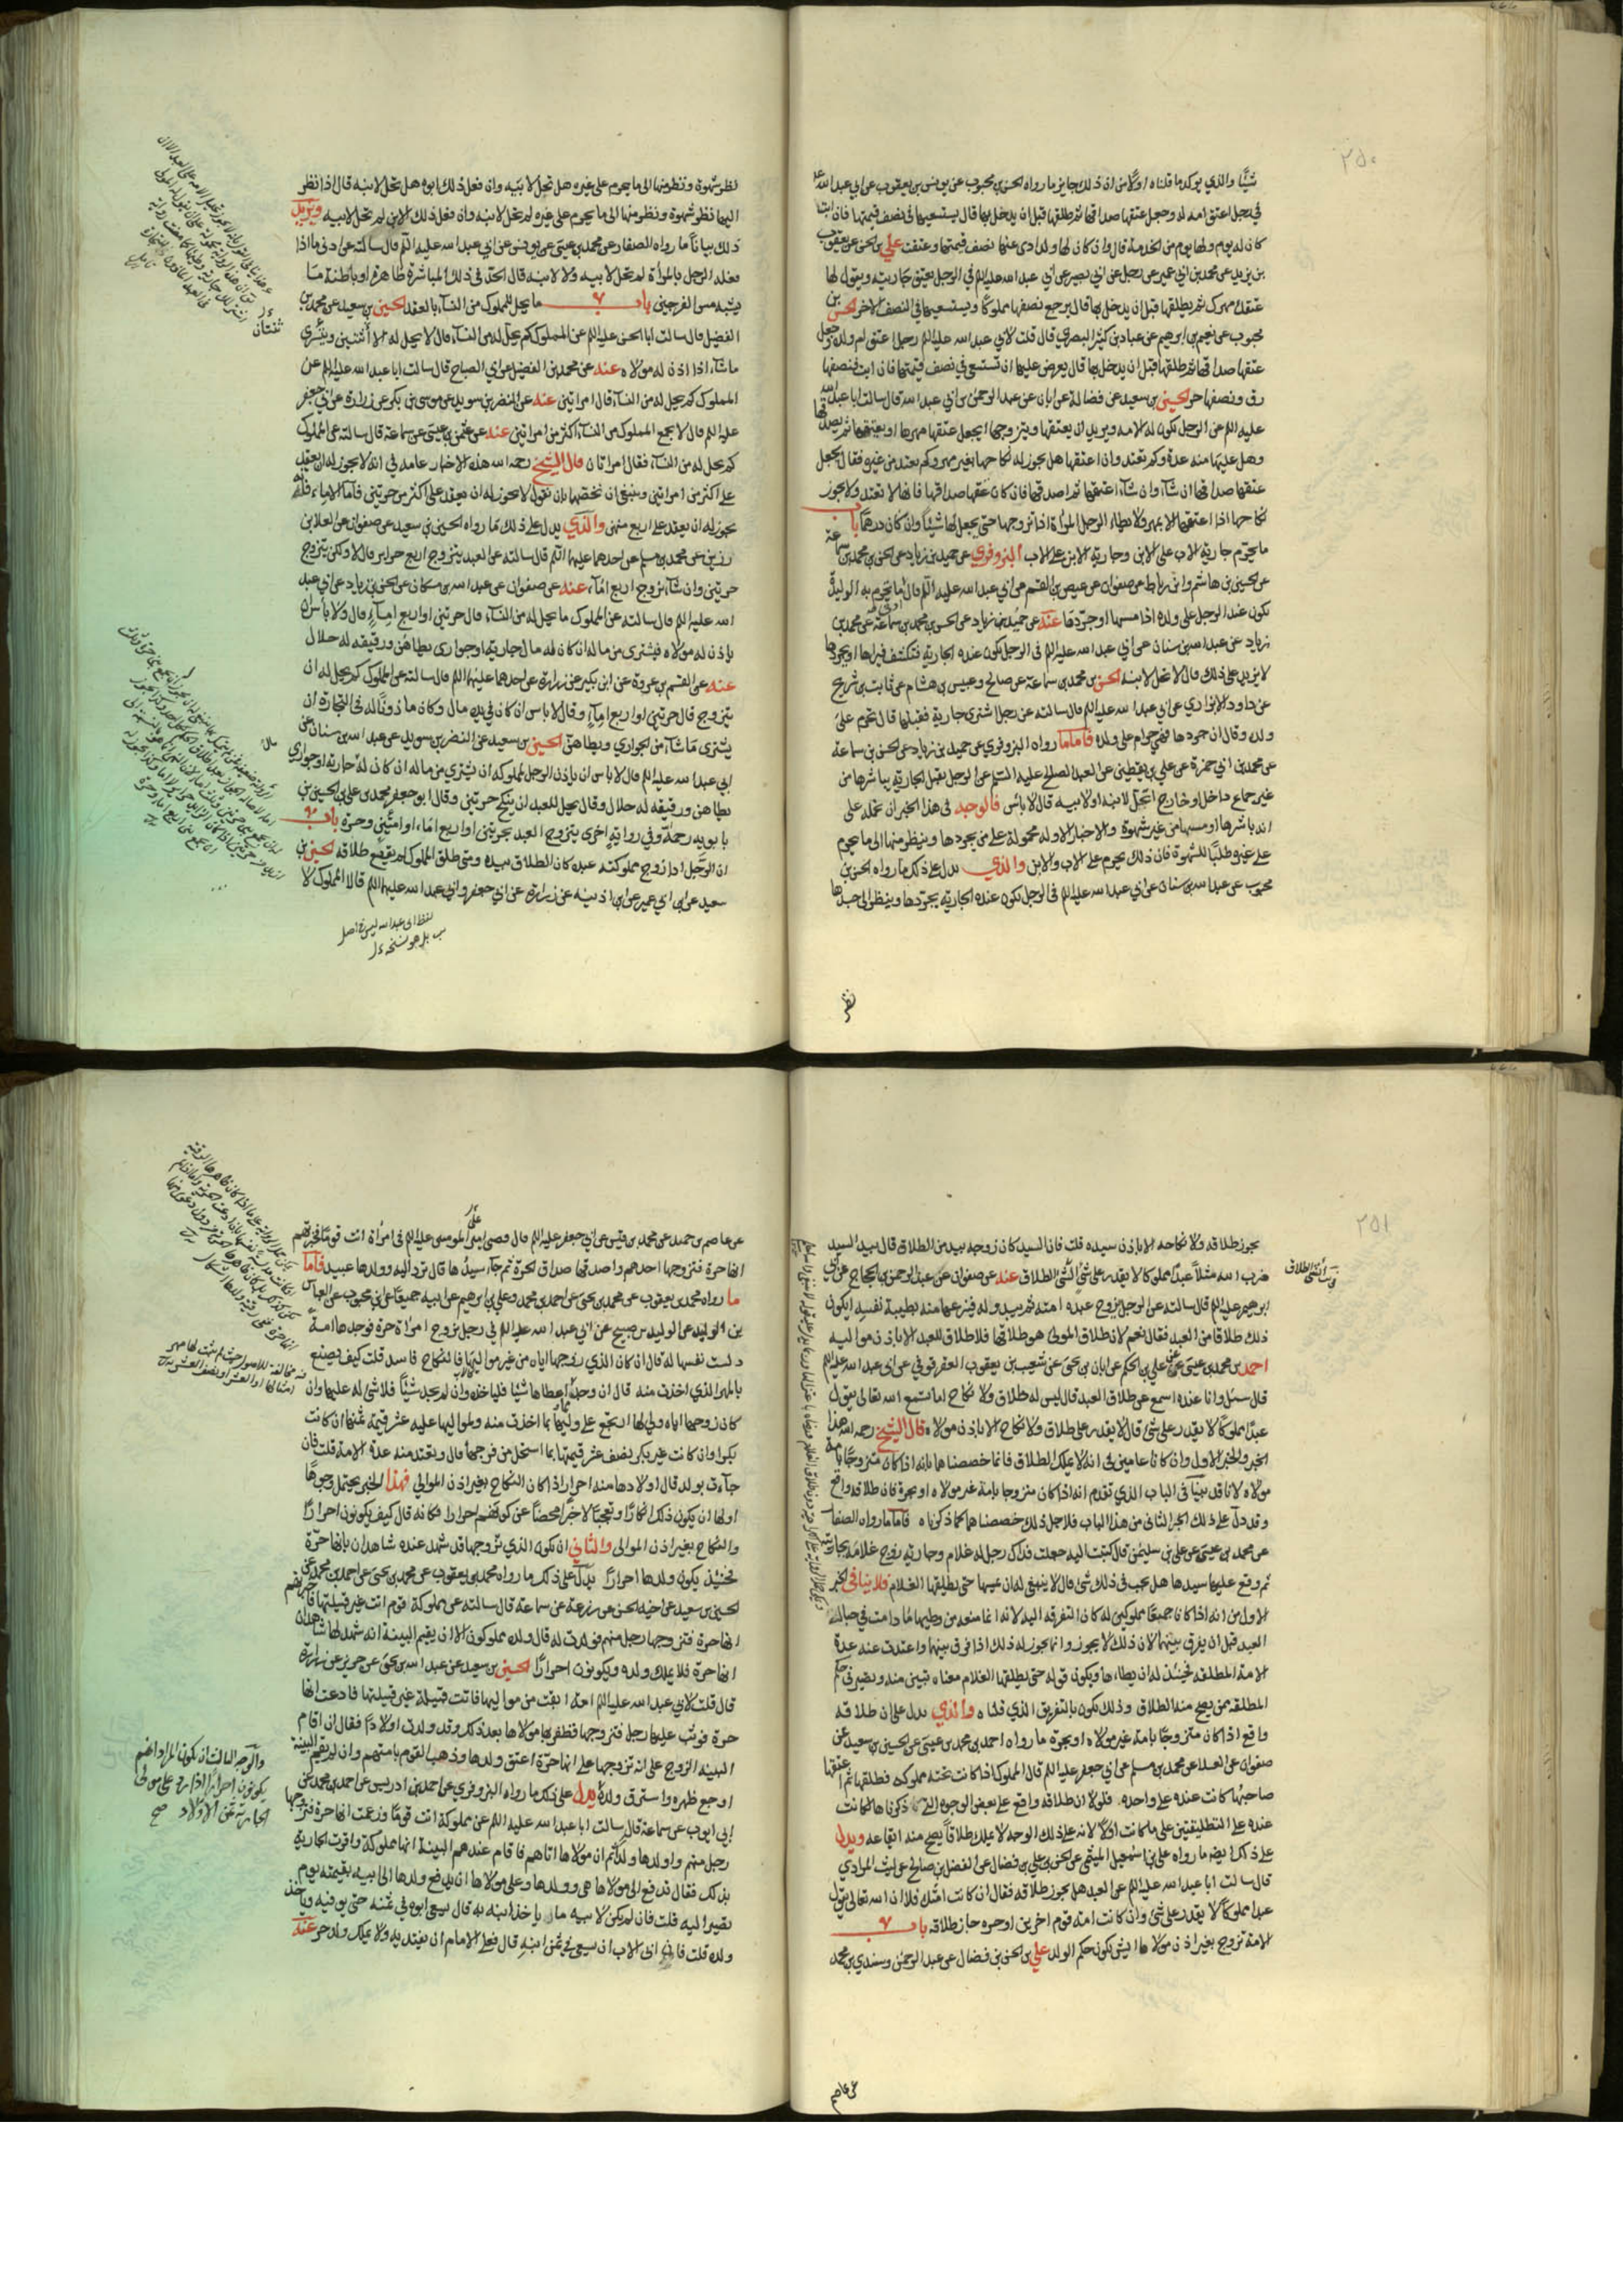 ٢٥٠
شيئا والذي يوكد ما قلناه اولا من ان ذلك جايز ما رواه الحسن بن محبوب عن يونس بن يعقوب عن ابي عبد الله
في رجل اعتق امه له وجعل عتقها صداقها ثم طلقها قبل ان يدخل بها قال يستسعيها في نصف قيمتها فان ابت
كان له يوم ولها يوم من الخدمة قال وان كان لها ولد ادى عنها نصف قيمتها وعتقت علي بن الحسن عن يعقوب
بن يزيد عن محمد بن ابي عمير عن رجل عن ابي بصير عن ابي عبد الله عليه السلم في الرجل يعتق جاريته ويقول لها
عتقك مهرك ثم يطلقها قبل ان يدخل بها قال يرجع نصفها مملوكا ويستسعيها في النصف الاخر الحسن بن
محبوب عن نعيم بن ابرهيم عن عباد بن كثير البصري قال قلت لابي عبد الله عليه السلم رجل اعتق ام ولد له وجعل
عتقها صداقها ثم طلقها قبل ان يدخل بها قال يعرض عليها ان تستسعي في نصف قيمتها فان ابت فنصفها
رق ونصفها حر الحسين بن سعيد عن فضالة عن ابان عن عبد الرحمن بن ابي عبد الله قال سالت ابا عبد الله
عليه السلم عن الرجل تكون له الامه ويريد ان يعتقها ويتزوجها ايجعل عتقها مهرها او يعتقها ثم يصدقها
وهل عليها منه عدة وكم تعتد وان اعتقها هل يجوز له نكاحها بغير مهر وكم تعتد من غيره فقال يجعل
عتقها صداقها ان شآء وان شآء اعتقها ثم اصدقها فان كان عتقها صداقها فانها لا تعتد ولا يجوز
نكاحها اذا اعتقها الا بمهر ولا يطاء الرجل المراة اذا تزوجها حتى يجعل لها شيئا وان كان درهما باب
ما يحرم جارية الاب على الابن وجارية الابن على الاب البزوفري عن حميد بن زياد عن الحسن بن محمد بن سماعة
عن الحسين بن هاشم وابن رباط عن صفوان عن عيص بن القسم عن ابي عبد الله عليه السلم قال ما يحرم به الوليدة
تكون عند الرجل على ولده اذا مسها او جردها عنه عن حميد بن زياد عن الحسن بن محمد بن سماعة عن محمد بن
زياد عن عبد الله بن سنان عن ابي عبد الله عليه السلم في الرجل تكون عنده الجارية فتكشف فيراها او يجردها
لا يزيد على ذلك قال لا تحل لابنه الحسن بن محمد بن سماعة عن صالح وعبيس بن هشام عن ثابت بن شريح
عن داود الابزاري عن ابي عبد الله عليه السلم قال سالته عن رجل اشترى جارية فقبلها قال تحرم على
ولده وقال ان جردها فهي حرام على ولده فاما ما رواه البزوفري عن حميد بن زياد عن الحسن بن سماعة
عن محمد بن ابي حمزة عن علي بن يقطين عن العبد الصالح عليه السلم عن الرجل يقبل الجارية يباشرها من
غير جماع داخل او خارج اتحل لابنه او لابيه قال لا بأس فالوجه في هذا الخبر ان نحمله على
انه باشرها او مسها من غير شهوة والاخبار الاوله محمولة على من يجردها وينظر منها الى ما يحرم
على غيره طلبا للشهوة فان ذلك يحرم على الاب والابن والذي يدل على ذلك ما رواه الحسن بن
محبوب عن عبد الله بن سنان عن ابي عبد الله عليه السلم في الرجل تكون عنده الجارية يجردها وينظر الى جسدها
نظر
نظر شهوة وينظر منها الى ما يحرم على غيره هل تحل لابيه وان فعل ذلك ابوه هل تحل لابنه قال اذا نظر
اليها نظر شهوة ونظر منها الى ما يحرم على غيره لم تحل لابنه وان فعل ذلك الابن لم تحل لابيه ويزيد
ذلك بيانا ما رواه الصفار عن محمد بن عيسى عن يونس عن ابي عبد الله عليه السلم قال سالته عن ادنى ما اذا
فعله الرجل بالمرأة لم تحل لابيه ولا لابنه قال الحد في ذلك المباشرة ظاهرة او باطنة مما
يشبه مس الفرجين باب ما يحل للمملوك من النسآء بالعقد الحسين بن سعيد عن محمد بن
الفضيل قال سالت ابا الحسن عليه السلم عن المملوك كم يحل له من النسآء قال لا يحل له الا اثنتين ويتسرى
ما شآء اذا اذن له مولاه عنه عن محمد بن الفضيل عن ابي الصباح قال سالت ابا عبد الله عليه السلم عن
المملوك كم يحل له من النسآء قال امراتين عنه عن النضر بن سويد عن موسى بن بكر عن زرارة عن ابي جعفر
عليه السلم قال لا يجمع المملوك من النسآء اكثر من امراتين عنه عن عثمن بن عيسى عن سماعة قال سالته عن المملوك
كم يحل له من النسآء فقال امراتان قال الشيخ رحمه الله هذه الاخبار عامه في انه لا يجوز له ان يعقد
على اكثر من امراتين وينبغي ان نخصها بان نقول لا يجوز له ان يعقد على اكثر من حرتين فاما الاماء فانه
يجوز له ان يعقد على اربع منهن والذي يدل على ذلك ما رواه الحسين بن سعيد عن صفوان عن العلا بن
رزين عن محمد بن مسلم عن احدهما عليهما السلم قال سالته عن العبد يتزوج اربع حراير قال لا ولكن يتزوج
حرتين وان شآء تزوج اربع امآء عنه عن صفوان عن عبد الله بن مسكان عن الحسن بن زياد عن ابي عبد
الله عليه السلم قال سالته عن المملوك ما يحل له من النسآء قال حرتين او اربع امآء قال ولا بأس ان
ياذن له مولاه فيشتري من ماله ان كان له مال جارية او جواري يطاهن ورقيقه له حلال
عنه عن القسم بن عروة عن ابن بكير عن زرارة عن احدهما عليهما السلم قال سالته عن المملوك كم يحل له ان
يتزوج قال حرتين او اربع امآء وقال لا باس ان كان في يده مال وكان ماذونا له في التجارة ان
يشتري ما شآء من الجواري ويطاهن الحسين بن سعيد عن النضر بن سويد عن عبد الله بن سنان عن
ابي عبد الله عليه السلم قال لا باس ان ياذن الرجل لمملوكه ان يشتري من ماله ان كان له جارية او جواري
يطاهن ورقيقه له حلال وقال يحل للعبد ان ينكح حرتين وقال ابو جعفر محمد بن علي بن الحسين بن
بابويه رحمه وفي رواية اخرى يتزوج العبد بحرتين او اربع اماء او امتين وحرة باب
ان الرجل اذا زوج مملوكته عبده كان الطلاق بيده ومتى طلق المملوك لم يقع طلاقه الحسين بن
سعيد عن ابن ابي عمير عن ابن اذينه عن زرارة عن ابي جعفر وابي عبد الله عليهما السلم قالا المملوك لا
لفظ ابي عبد الله ليس في اصل
بل هو نسخه
ثنتان
٢٥١
يجوز طلاقه ولا نكاحه الا باذن سيده قلت فان السيد كان زوجه بيد من الطلاق قال بيد السيد
ضرب الله مثلا عبدا مملوكا لا يقدر على شئ الشئ الطلاق عنه عن صفوان عن عبد الرحمن بن الحجاج عن ابي
ابرهيم عليه السلم قال سالته عن الرجل يزوج عبده امته ثم يبدو له فينزعها منه بطيبة نفسه ايكون
ذلك طلاقا من العبد فقال نعم لان طلاق المولى هو طلاقها فلا طلاق للعبد الا باذن مواليه
احمد بن محمد بن عيسى عن علي بن الحكم عن ابان بن يحيى عن شعيب بن يعقوب العقرقوفي عن ابي عبد الله عليه السلم
قال سئل وانا عنده اسمع عن طلاق العبد قال ليس له طلاق ولا نكاح اما تسمع الله تعالى يقول
عبدا مملوكا لا يقدر على شئ قال لا يقدر على طلاق ولا نكاح الا باذن مولاه قال الشيخ رحمه الله هذا
الخبر والخبر الاول وان كانا عامين في انه لا يملك الطلاق فانما خصصناهما بانه اذا كان متزوجا بامة
مولاه لانا قد بينا في الباب الذي تقدم انه اذا كان متزوجا بامة غير مولاه او بحرة فان طلاقه واقع
وقد دل على ذلك الخبر الثاني من هذا الباب فلاجل ذلك خصصناهما كما ذكرناه فاما ما رواه الصفار
عن محمد بن عيسى عن علي بن سليمن قال كتبت اليه جعلت فداك رجل له غلام وجارية زوج غلامه بجاريته
ثم وقع عليها سيدها هل يجب في ذلك شئ قال لا ينبغي له ان يمسها حتى يطلقها الغلام فلا ينافي الخبر
الاول من انه اذا كانا جميعا مملوكين له كان التفرقه اليه لانه انما منعه من وطيها ما دامت في حباله
العبد قبل ان يفرق بينهما لان ذلك لا يجوز وانما يجوز له ذلك اذا فرق بينهما واعتدت عنه عدة
الامة المطلقه فحينئذ له ان يطاءها ويكون قوله حتى يطلقها الغلام معناه تبين منه وتصير في حكم
المطلقة بمن يصح منه الطلاق وذلك يكون بالتفريق الذي قدمناه والذي يدل على ان طلاقه
واقع اذا كان متزوجا بامة غير مولاه او بحرة ما رواه احمد بن محمد بن عيسى عن الحسين بن سعيد عن
صفوان عن العلا عن محمد بن مسلم عن ابي جعفر عليه السلم قال المملوك اذا كانت تحته مملوكه فطلقها ثم اعتقها
صاحبها كانت عنده على واحده فلولا ان طلاقه واقع على بعض الوجوه التي ذكرناها لكانت
عنده على التطليقتين على ما كانت اولا لانه على ذلك الوجه لا يملك طلاقا يصح منه ايقاعه ويدل
على ذلك ايضا ما رواه علي بن اسمعيل الميثمي عن الحسن بن علي بن فضال عن المفضل بن صالح عن ليث المرادي
قال سالت ابا عبد الله عليه السلم عن العبد هل يجوز طلاقه فقال ان كانت امتك فلا ان الله تعالى يقول
عبدا مملوكا لا يقدر على شئ وان كانت امة قوم اخرين او حره جاز طلاقه باب
الامة تزوج بغير اذن مولاها ايش يكون حكم الولد علي بن الحسن بن فضال عن عبد الرحمن وسندي بن محمد
عن عاصم
عن عاصم بن حميد عن محمد بن قيس عن ابي جعفر عليه السلم قال قضى امير المومنين عليه السلم في امرأة اتت قوما فخبرتهم
انها حرة فتزوجها احدهم واصدقها صداق الحرة ثم جآء سيدها قال ترد اليه وولدها عبيد فاما
ما رواه محمد بن يعقوب عن محمد بن يحيى عن احمد بن محمد وعلي بن ابرهيم عن ابيه جميعا عن ابن محبوب عن العباس
بن الوليد عن الوليد بن صبيح عن ابي عبد الله عليه السلم في رجل تزوج امراة حرة فوجدها امة
دلست نفسها له قال ان كان الذي زوجها اياه من غير مواليها فالنكاح فاسد قلت كيف يصنع
بالمهر الذي اخذت منه قال ان وجد مما اعطاها شيئا فلياخذه وان لم يجد شيئا فلا شئ له عليها وان
كان زوجها اياه ولي لها ارتجع على وليها بما اخذت منه ولمواليها عليه عشر قيمة ثمنها ان كانت
بكرا وان كانت غير بكر نصف عشر قيمتها بما استحل من فرجها قال وتعتد منه عدة الامة قلت فان
جآءت بولد قال اولادها منه احرار اذا كان النكاح بغير اذن الموالي فهذا الخبر يحتمل وجوها
اولها ان يكون ذلك انكارا وتعجبا لا خبرا محضا عن كونهم احرارا فكانه قال كيف يكونون احرارا
والنكاح بغير اذن الموالي والثاني ان يكون الذي تزوجها قد شهد عنده شاهدان بانها حرة
فحينئذ يكون ولدها احرارا يدل على ذلك ما رواه محمد بن يعقوب عن محمد بن يحيى عن احمد بن محمد عن
الحسين بن سعيد عن اخيه الحسن عن زرعة عن سماعة قال سالته عن مملوكة قوم اتت غير قبيلتها فاخبرتهم
انها حرة فتزوجها رجل منهم فولدت له قال ولده مملوكون الا ان يقيم البينة انه شهد لها شاهدان
انها حرة فلا يملك ولده ويكونون احرارا الحسين بن سعيد عن عبد الله بن يحيى عن حريز عن زرارة
قال قلت لابي عبد الله عليه السلم امة ابقت من مواليها فاتت قبيلة غير قبيلتها فادعت انها
حرة فوثب عليها رجل فتزوجها فظفر بها مولاها بعد ذلك وقد ولدت اولادا فقال ان اقام
البينة الزوج على انه تزوجها على انها حرة اعتق ولدها وذهب القوم بامتهم وان لم يقم البينة
اوجع ظهره واسترق ولده يدل على ذلك ما رواه البزوفري عن احمد بن ادريس عن احمد بن محمد عن
ابي ايوب عن سماعة قال سالت ابا عبد الله عليه السلم عن مملوكة اتت قوما وزعمت انها حرة فتزوجها
رجل منهم واولدها ولدا ثم ان مولاها اتاهم فاقام عندهم البينة انها مملوكة واقرت الجارية
بذلك فقال تدفع الى مولاها هي وولدها وعلى مولاها ان يدفع ولدها الى ابيه بقيمته يوم
يصير اليه قلت فان لم يكن لابيه مال ياخذ ابنه به قال يسعى ابوه في ثمنه حتى يوفيه وياخذ
ولده قلت فان ابى الاب ان يسعى في ثمن ابنه قال فعلى الامام ان يفتديه ولا يملك ولد حر عنه
والوجه الثالث ان يكون المراد انهم
يكونون احرارا اذا رد على مولى
الجارية ثمن الاولاد صح